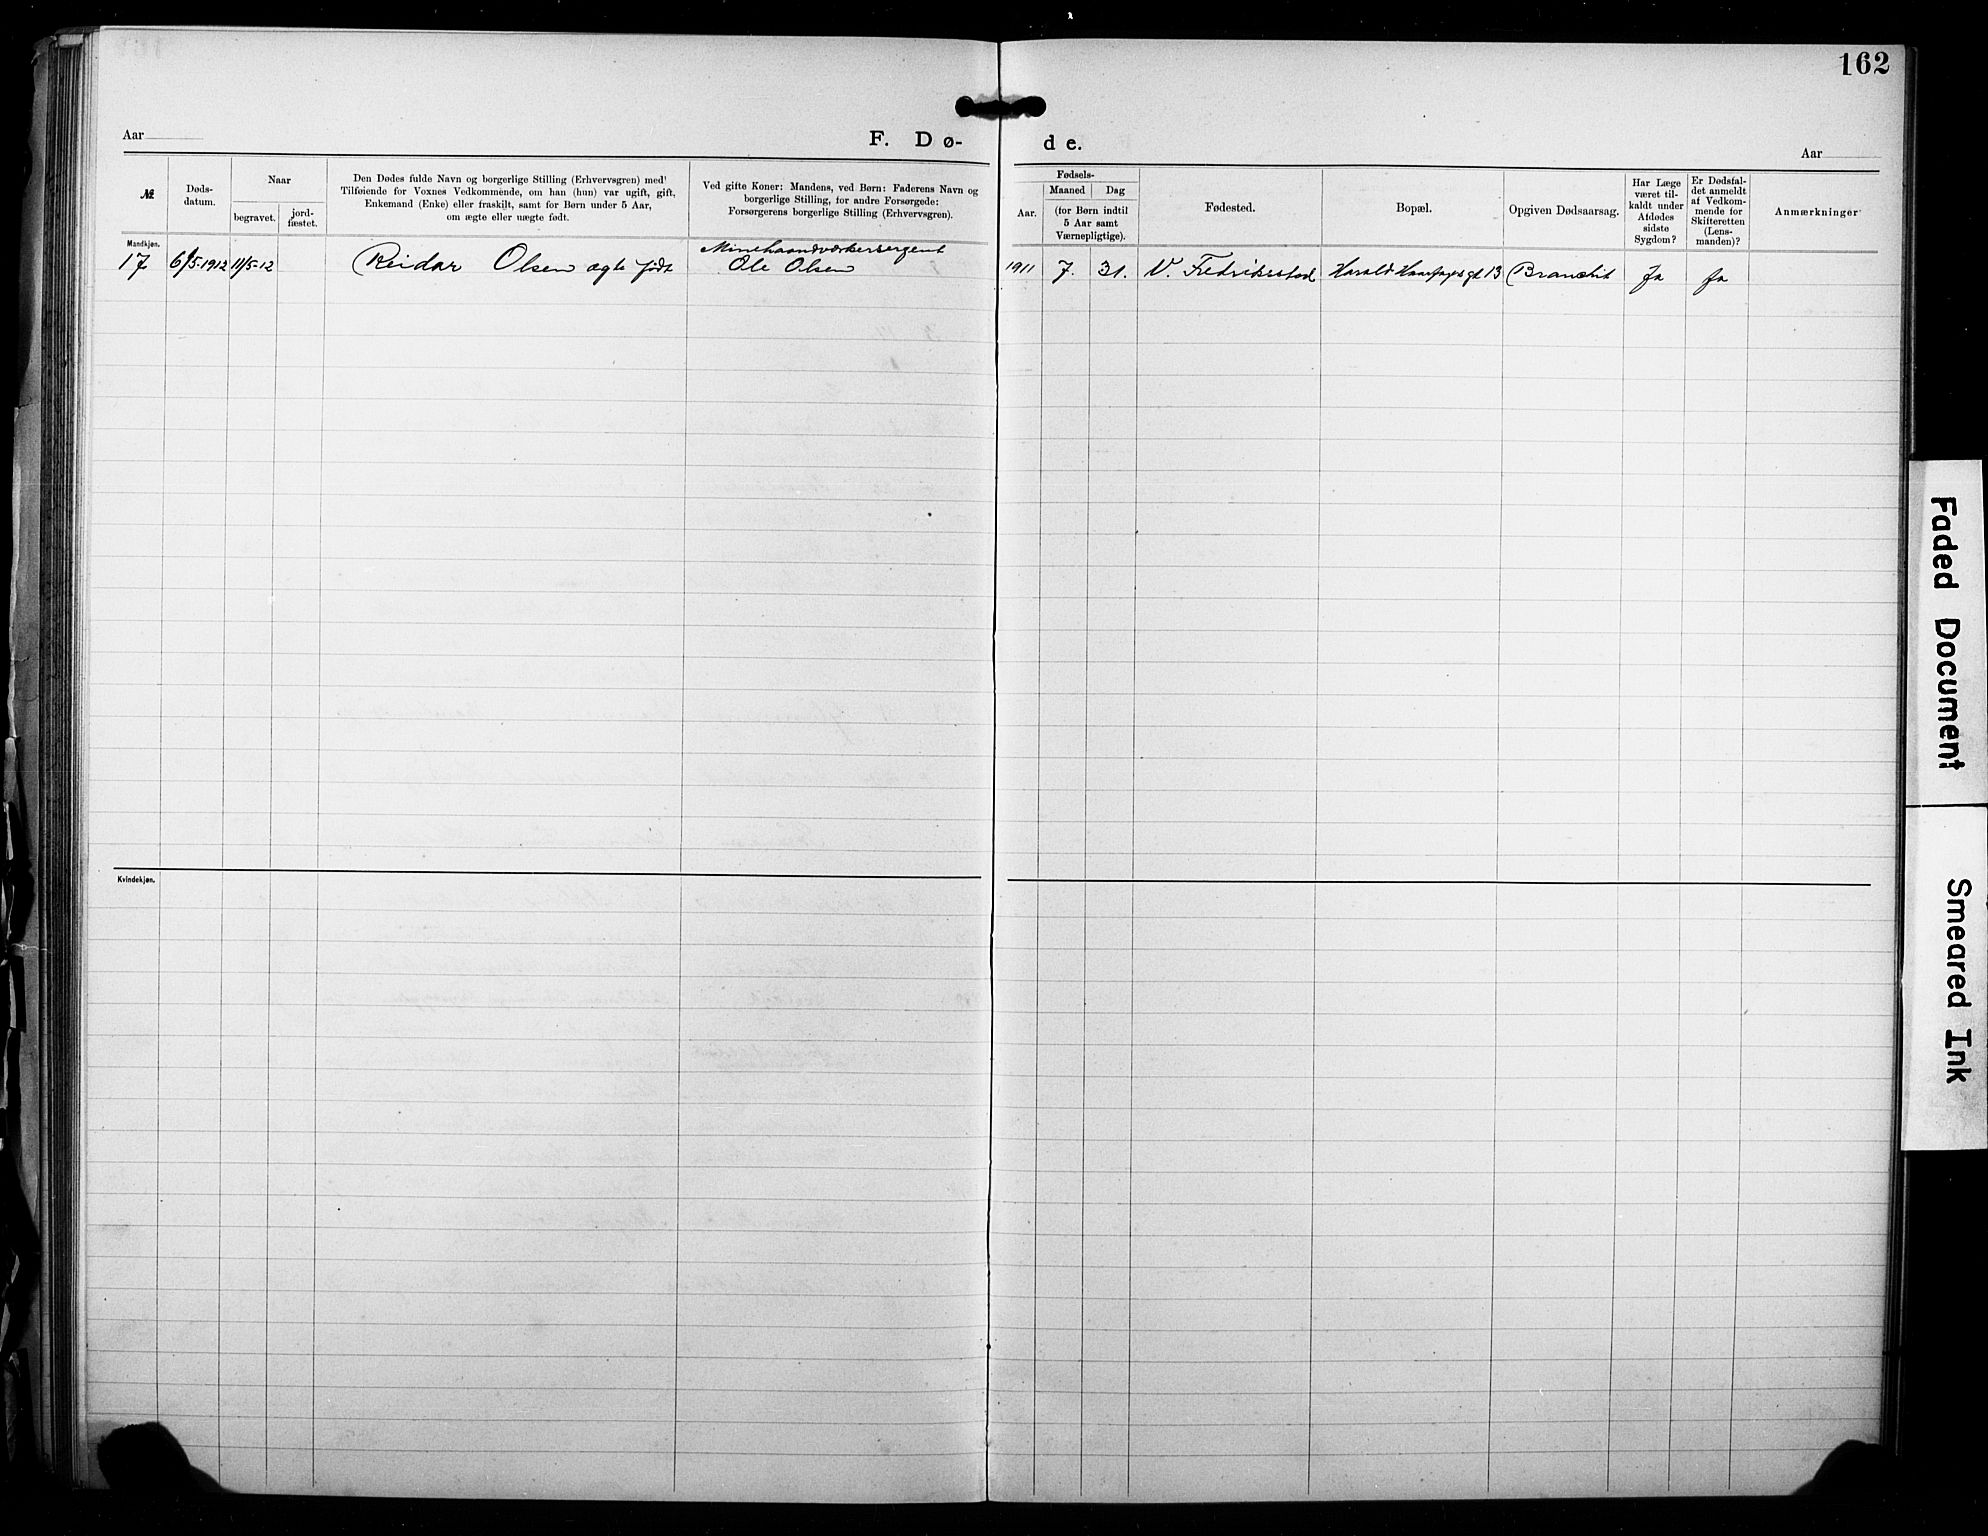 162
Aar
F. Dø-
de.
Aar
№
Døds-
datum.
Naar
begravet.
jord-
fæstet.
Den Dødes fulde Navn og borgerlige Stilling (Erhvervsgren) med
Tilføiende for Voxnes Vedkommende, om han (hun) var ugift, gift,
Enkemand (Enke) eller fraskilt, samt for Børn under 5 Aar,
om ægte eller uægte født.
Ved gifte Koner: Mandens, ved Børn: Faderens Navn og
borgerlige Stilling, for andre Forsørgede:
Forsørgerens borgerlige Stilling (Erhvervsgren).
Fødsels-
Aar.
Maaned
Dag
(for Børn indtil
5 Aar samt
Værnepligtige).
Fødested.
Bopæl.
Opgiven Dødsaarsag.
Har Læge
været til-
kaldt under
Afdødes
sidste
Sygdom?
Er Dødsfal-
det anmeldt
af Vedkom-
mende for
Skifteretten
(Lens-
manden)?
Anmærkninger
Mandkjøn.
Minehaandværkersergent
17 6/5-1912 11/5-12 Reidar Olsen ægte født Ole Olsen 1911 7. 31. V. Fredrikstad Harald Haarfagresgt 13 Bronchit Ja Ja
Kvindekjøn.
Faded Document
Smeared Ink